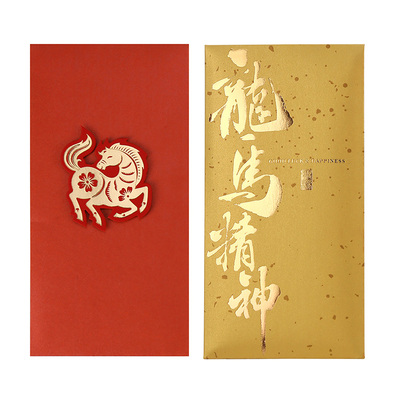 龍馬精神
GOOD LUCK HAPPINESS